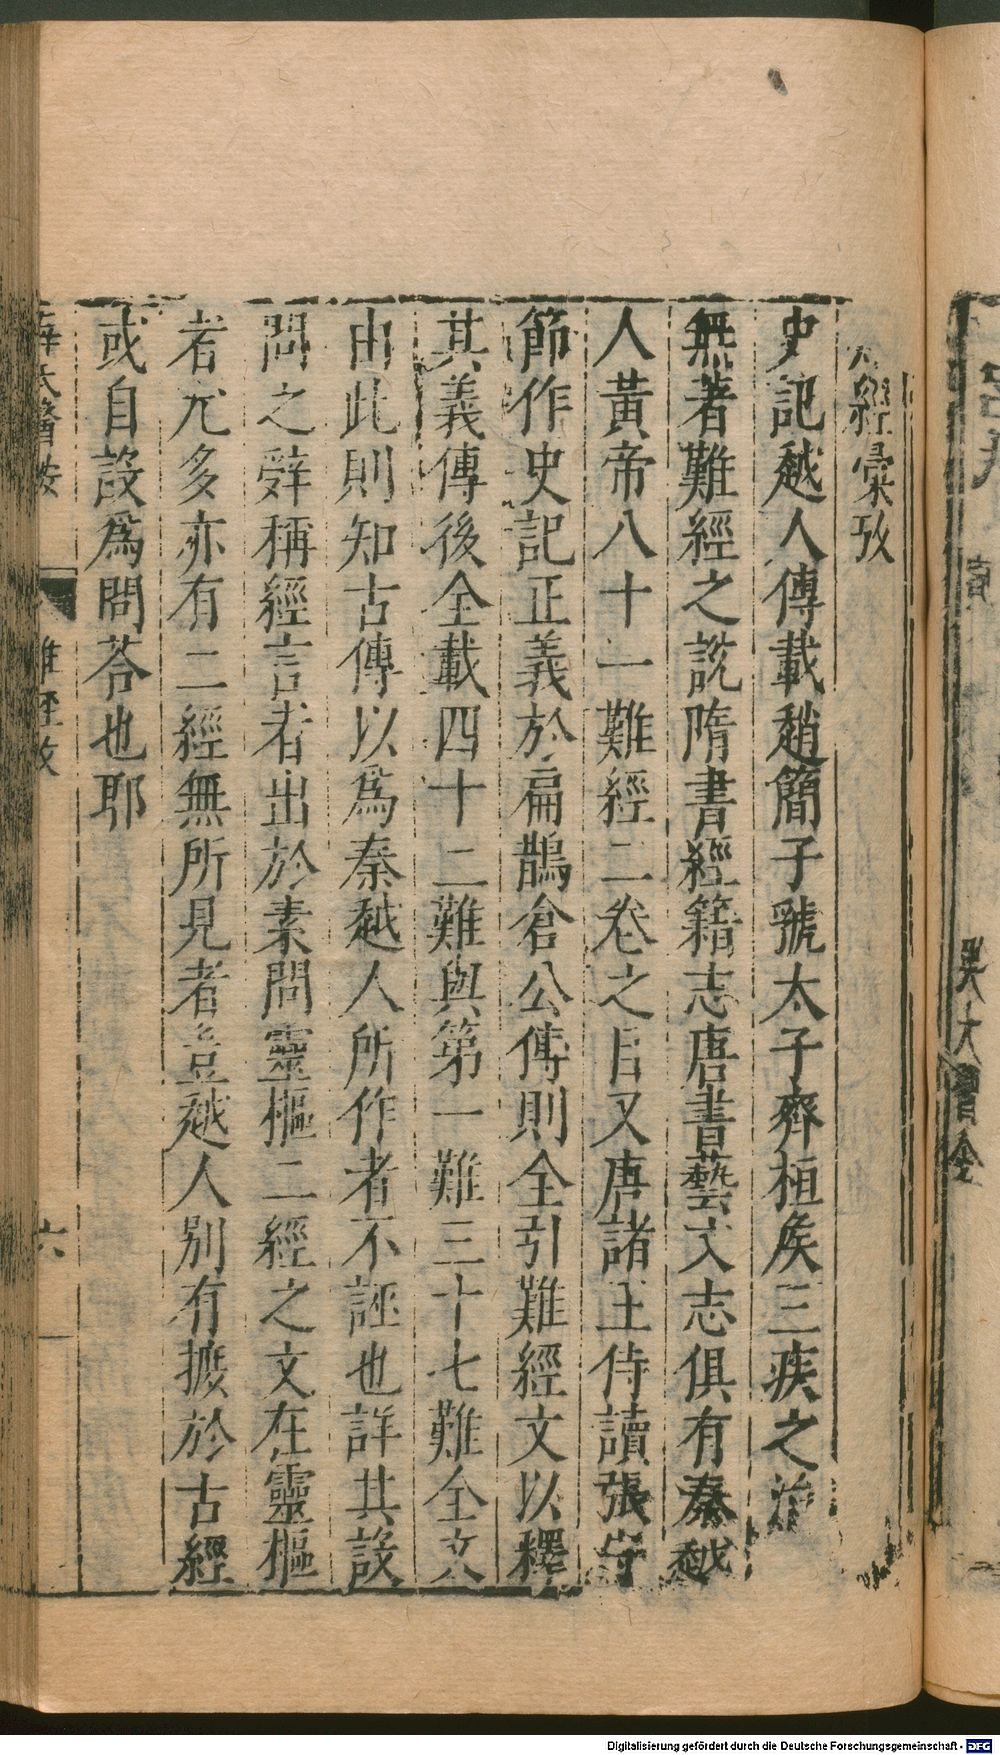 經彙攷
史記越人傳載趙簡子虢太子齊桓矦三疾之治
無著難經之說隋書經籍志唐書藝文志俱有秦越
人黃帝八十一難經二卷之目又唐諸王侍讀張守
節作史記正義於扁鵲倉公傳則全引難經文以釋
其義傳後全載四十二難與第一難三十七難全文
由此則知古傳以爲秦越人所作者不誣也詳其設
問之辤稱經言者出於素問靈樞二經之文在靈樞
者尤多亦有二經無所見者豈越人別有摭於古經
或自設爲問荅也耶
氏醫按
難經攷
六
Digitalisierung gefördert durch die Deutsche Forschungsgemeinschaft - DFG